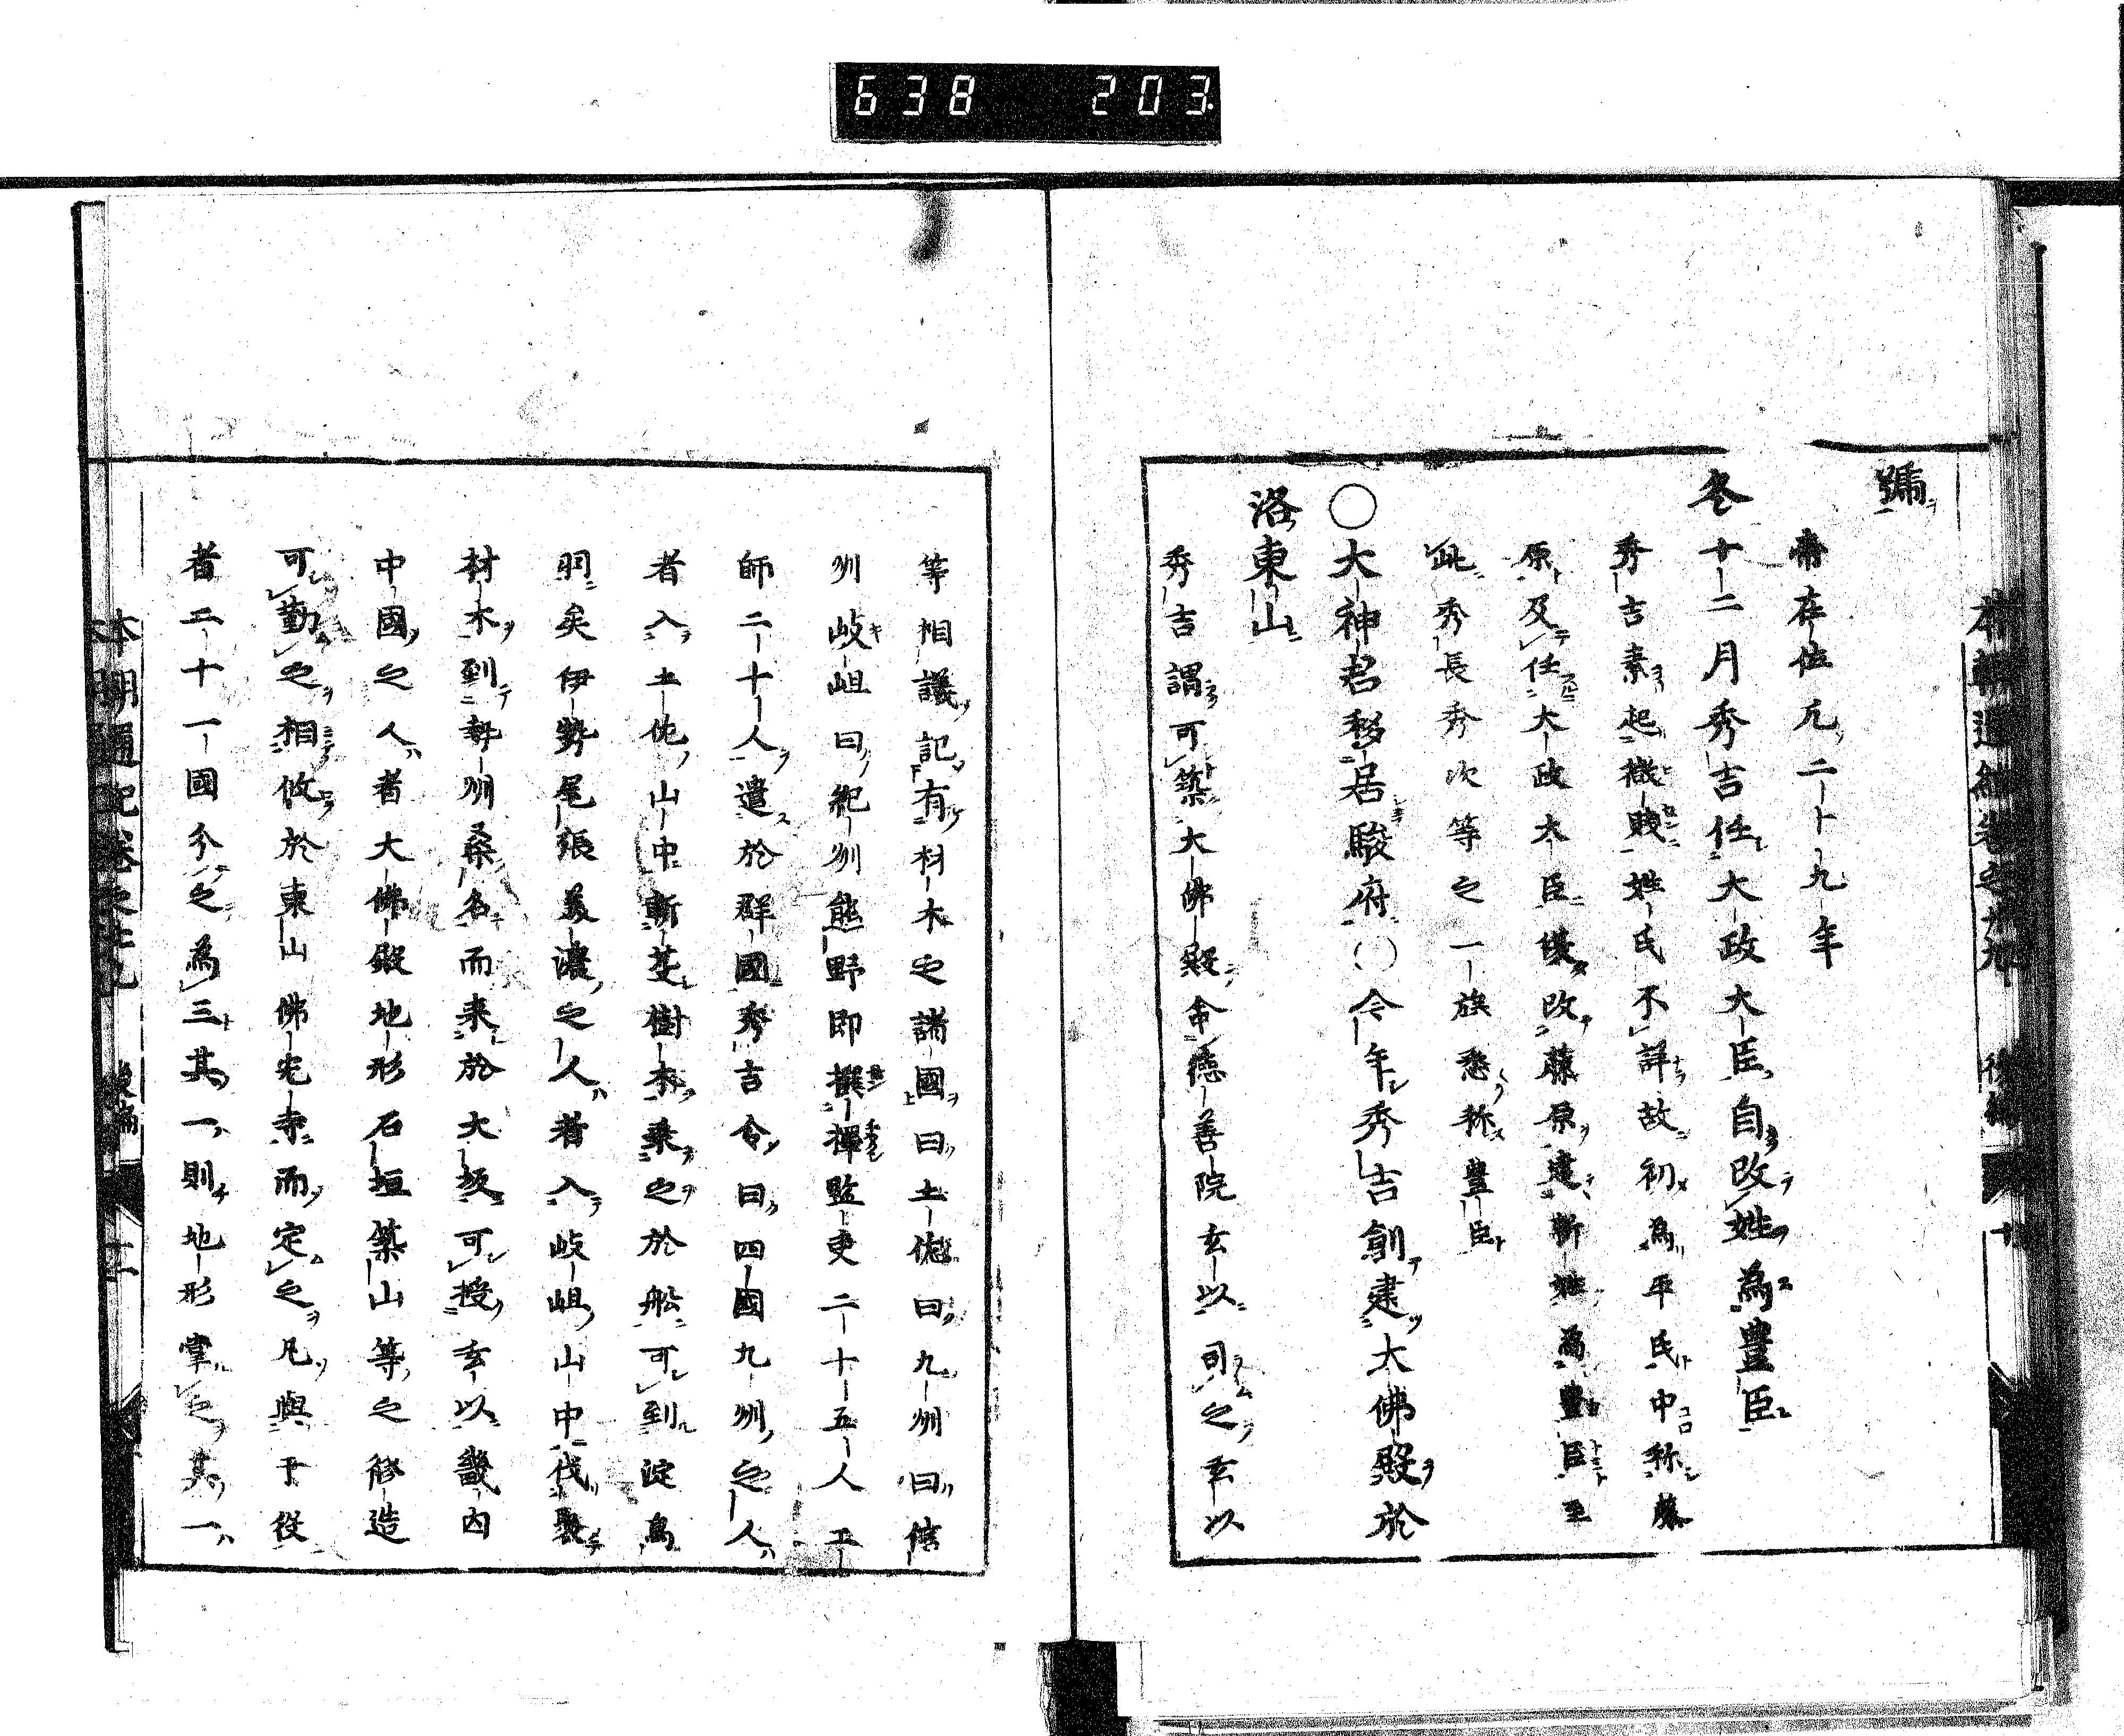 638 203
號
帝在位凡二十九年
冬十二月秀吉任大政大臣自改姓為豊臣
秀吉素起微賤姓氏不詳故初為平氏中称藤
原及任大政大臣後改藤原建新姓為豊臣至
此秀長秀次等之一族悉称豊臣
○大神君移居駿府○今年秀吉創建大佛殿於
洛東山
秀吉謂可築大佛殿命徳善院玄以司之玄以
等相議記有材木之諸國曰土佐曰九州曰信
州岐岨曰紀州熊野即撰擇監吏二十五人工
師二十人遣於群國秀吉令曰四國九州之人
者入土佐山中斬芟樹木乗之於舩可到淀鳥
羽矣伊勢尾張美濃之人者入岐岨山中伐聚
材木到勢州桑名而来於大坂可授玄以畿内
中國之人者大佛殿地形石垣築山等之修造
可勤之相攸於東山佛光寺而定之凡與于役
者二十一國分之為三其一則地形掌之其一
本朝通紀巻之廿九 後編 十二